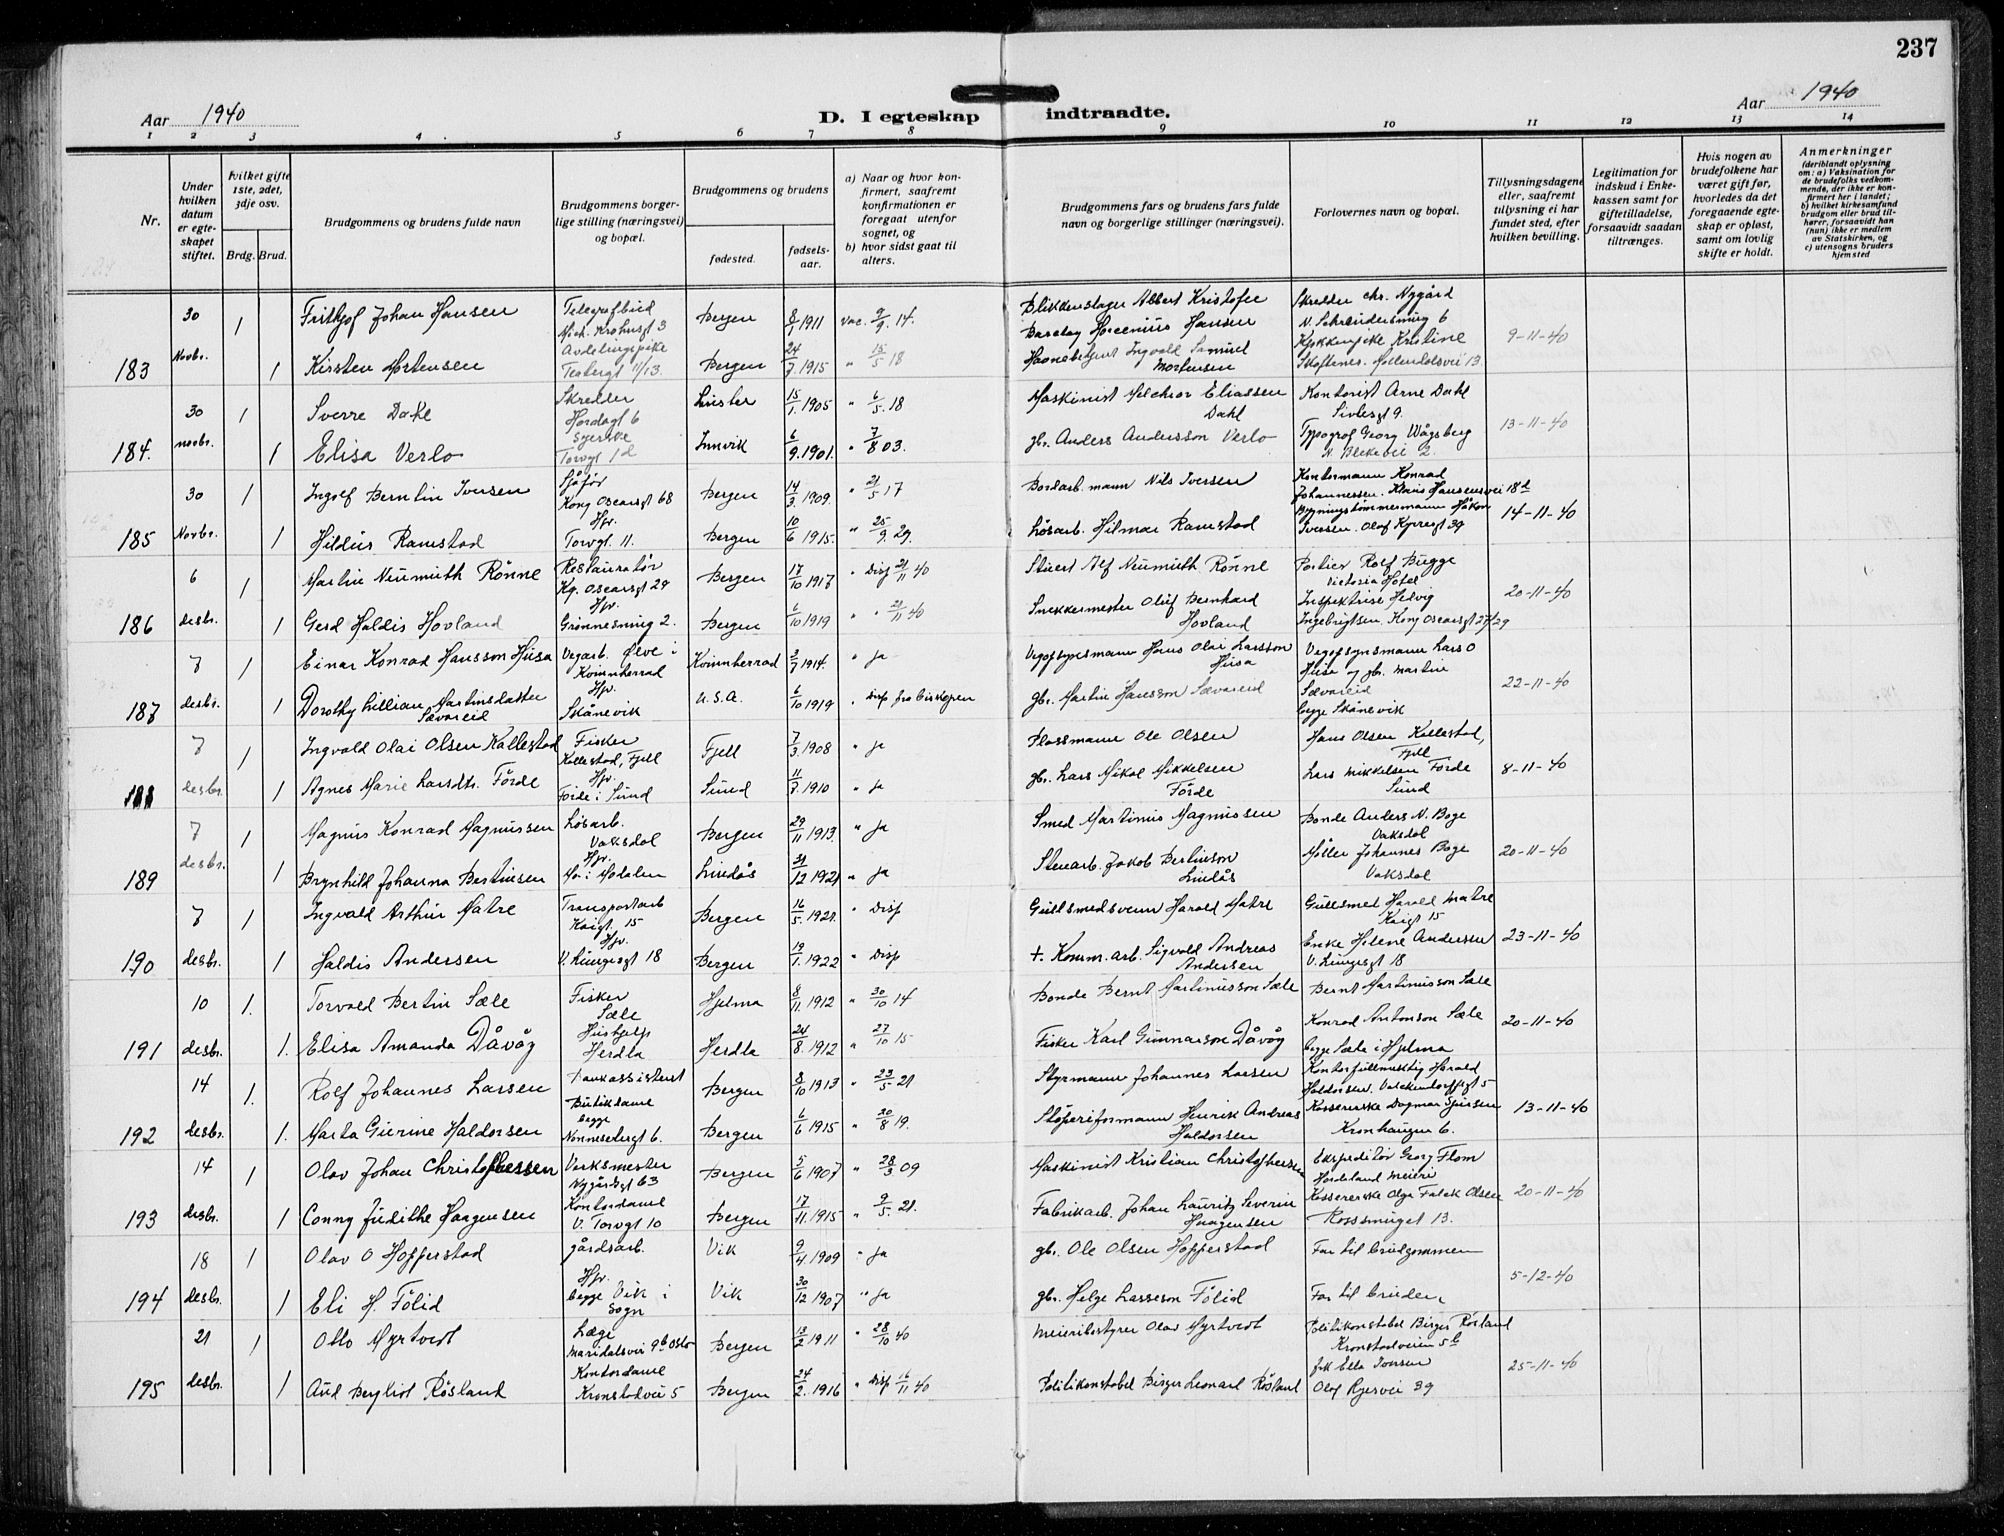 237
Aar 1940
D. I egteskap indtraadte.
Aar 1940
1 2 3 4 5 6 7 8 9 10 11 12 13 14
Nr.
Under hvilken datum er egteskapet stiftet.
hvilket gifte 1ste, 2det, 3dje osv.
Brdg. Brud.
Brudgommens og brudens fulde navn
Brudgommens borgerlige stilling (næringsvei) og bopæl.
Brudgommens og brudens
fødested.
fødselsaar.
a) Naar og hvor konfirmert, saafremt konfirmationen er foregaat utenfor sognet, og
b) hvor sidst gaat til alters.
Brudgommens fars og brudens fars fulde navn og borgerlige stillinger (næringsvei).
Forlovernes navn og bopæl.
Tillysningsdagene eller, saafremt tillysning ei har fundet sted, efter hvilken bevilling.
Legitimation for indskud i Enkekassen samt for giftetilladelse, forsaavidt saadan tiltrænges.
Hvis nogen av brudefolkene har været gift før, hvorledes da det foregaaende egteskap er opløst, samt om lovlig skifte er holdt.
Anmerkninger
(deriblandt oplysning om: a) Vaksination for de brudefolks vedkommende, der ikke er konfirmert her i landet; b) hvilket kirkesamfund brudgom eller brud tilhører, forsaavidt han (hun) ikke er medlem av Statskirken, og c) utensogns bruders hjemsted
30 1 Frithjof Johan Hansen Telegrafbud Mich. Krohnsgt 3 Bergen 8/1 1911 Vac. 9/9. 14. Blikkenslager Albert Kristofer Barclay Hansen Skredder Chr. Nygård
183 Novbr. 1 Kirsten Mortensen Teatergt 11/13. Bergen 24/7. 1915 " 15/5 18 Ingvald Samuel Mortensen Kristine 9-11-40
30 1 Sverre Dahl Skredder Hordagt 6 15/1. 1905 " 6/5. 18 Maskinist Melchior Eliassen Dahl Kontorist Arne Dahl
184. novbr. 1 Elisa Verlo Syerske Torvgt 1d Innvik 6/9. 1901. " 7/8 03. gbr. Anders Andersson Verlo Typograf Georg Vågsberg 13-11-40
30 1 Ingolf Berntin Iversen Sjåfør Kong Oscarsgt 68 Bergen 14/3 1909. " 21/5 17 Nils Iversen Kontormann Konrad Johannessen. Klaus Hansensvei 18d
185 Novbr. 1 Hildus Ramstad Hpr. Torvgt. 11. Bergen 10/6 1915. " 25/9. 29. Løsarb. Hilmar Ramstad Bygningstømmermann Håkon Iversen. Olaf Kyrresgt 39 14-11-40
6 1 Martin Neumuth Rønne Restauratør Kg. Oscarsgt 29 Bergen 17/10 1917 " Disp 21/11 40 Stuert Alf Neumuth Rønne Portier Rolf Bugge Victoria Hotel
186 desbr. 1 Gerd Haldis Hovland Hpr. Grønnesmug 2. Bergen 6/10 1919 " " 21/11 40 Snekkermester Oluf Bernhard Hovland Inspektrise Helvig Ingebrigtsen. Kong Oscarsgt 27/29 20-11-40
7 1 Einar Konrad Hansson Husa Vegarb. Ølve i Kvinnherrad Kvinnherrad 3/7 1914. " Ja Vegopsynsmann Hans Olai Larsson Husa Vegopsynsmann Lars O Husa og gb. Martin
187 desbr. 1 Dorothy Lillian Martinsdatter Sævareid Hpr. Skånevik U.S.A. 6/10 1919 " Disp fra biskopen gbr. Martin Hansson Sævareid Sævareid begge Skånevik 22-11-40
7 1 Ingvald Olai Olsen Kallestad Fisker Kallestad, Fjell Fjell 7/3. 1908 " ja Plassmann Ole Olsen Hans Olsen Kallestad, Fjell
188 desbr. 1 Agnes Marie Larsdtr. Förde Hpr. Förde i Sund Sund 11/7. 1910 " Ja gbr. Lars Mikal Mikkelsen Förde Lars Mikkelsen Förde Sund 8-11-40
7 1 Magnus Konrad Magnussen Løsarb. Vaksdal Bergen 29/11 1913. " Ja Smed Martinus Magnussen Bonde Anders N. Boge Vaksdal
189 desbr. 1 Brynhild Johanna Bertinsen Hpr. Mo i Modalen Lindås 31/12 1921 " ja Stenarb. Jakob Bertinson Lindås Møller Johannes Boge Vaksdal 20-11-40
7 1 Ingvald Arthur Matre Transportarb Kaigt. 15 Bergen 16/5. 1921. " Disp Gullsmedsvenn Harald Matre Gullsmed Harald Matre Kaigt 15
190 desbr. 1 Haldis Andersen Hpr. V. Lungesgt 18 Bergen 19/1. 1922 " Disp +. Komm. arb. Sigvald Andreas Andersen Enke Helene Andersen V. Lungesgt 18 23-11-40
10 1. Torvald Bertin Sæle Fisker Sæle Hjelma 8/11. 1912 " 30/10 14 Bonde Bernt Martinusson Sæle Bernt Martinusson Sæle
191 desbr. 1. Elisa Amanda Dåvøy Hushjelp Herdla Herdla 24/8. 1912 " 27/10 15 Fisker Karl Gunnarson Dåvøy Konrad Antonson Sæle begge Sæle i Hjelma 20-11-40
14 1. Rolf Johannes Larsen Bankassistent Bergen 8/10 1913 " 23/5 21 Styrmann Johannes Larsen Kontorfullmektig Harald Haldorsen.
192 desbr. 1. Marta Gurine Haldorsen Butikdame begge Nonnesetergt 6. Bergen 6/6 1915 " 20/8 19. Støperiformann Henrik Andreas Haldorsen Kassererske Dagmar Kronhaugen 6. 13-11-40
14 1 Olav Johan Christophersen Verksmester Nygårdsgt 63 Bergen 5/6 1907 " 28/3 09 Maskinist Kristian Christophersen Ekspeditør Georg Flom Hordaland Meieri
193 desbr. 1 Conny Judithe Haagensen Kontordame V. Torvgt 10 Bergen 17/11. 1915 " 9/5. 21. Fabrikarb. Johan Lauritz Severin Haagensen Kassererske Olga Falck Olsen Rossmuget 13. 20-11-40
18 1 Olav O Hopperstad gårdsarb. Vik 9/4 1909 " ja gbr. Ole Olsen Hopperstad Far til brudgommen
194 desbr. 1 Eli H. Fölid Hpr. begge Vik i Sogn Vik 30/12 1907 " ja gbr. Helge Lasseson Fölid Far til bruden 5-12-40
21 1 Otto Myrtvedt Læge Maridalsvei 9b Oslo Bergen 13/2 1911 " 28/10 40 Meieribestyrer Olav Myrtvedt Politikonstabel Birger Røsland Kronstadveien 5b
195 desbr. 1 Aud Bergliot Røsland Kontordame Kronstadvei 5 Bergen 24/2. 1916 " Disp 16/11 40 Politikonstabel Birger Leonard Røsland frk Ella Iversen Olaf Ryesvei 39 25-11-40